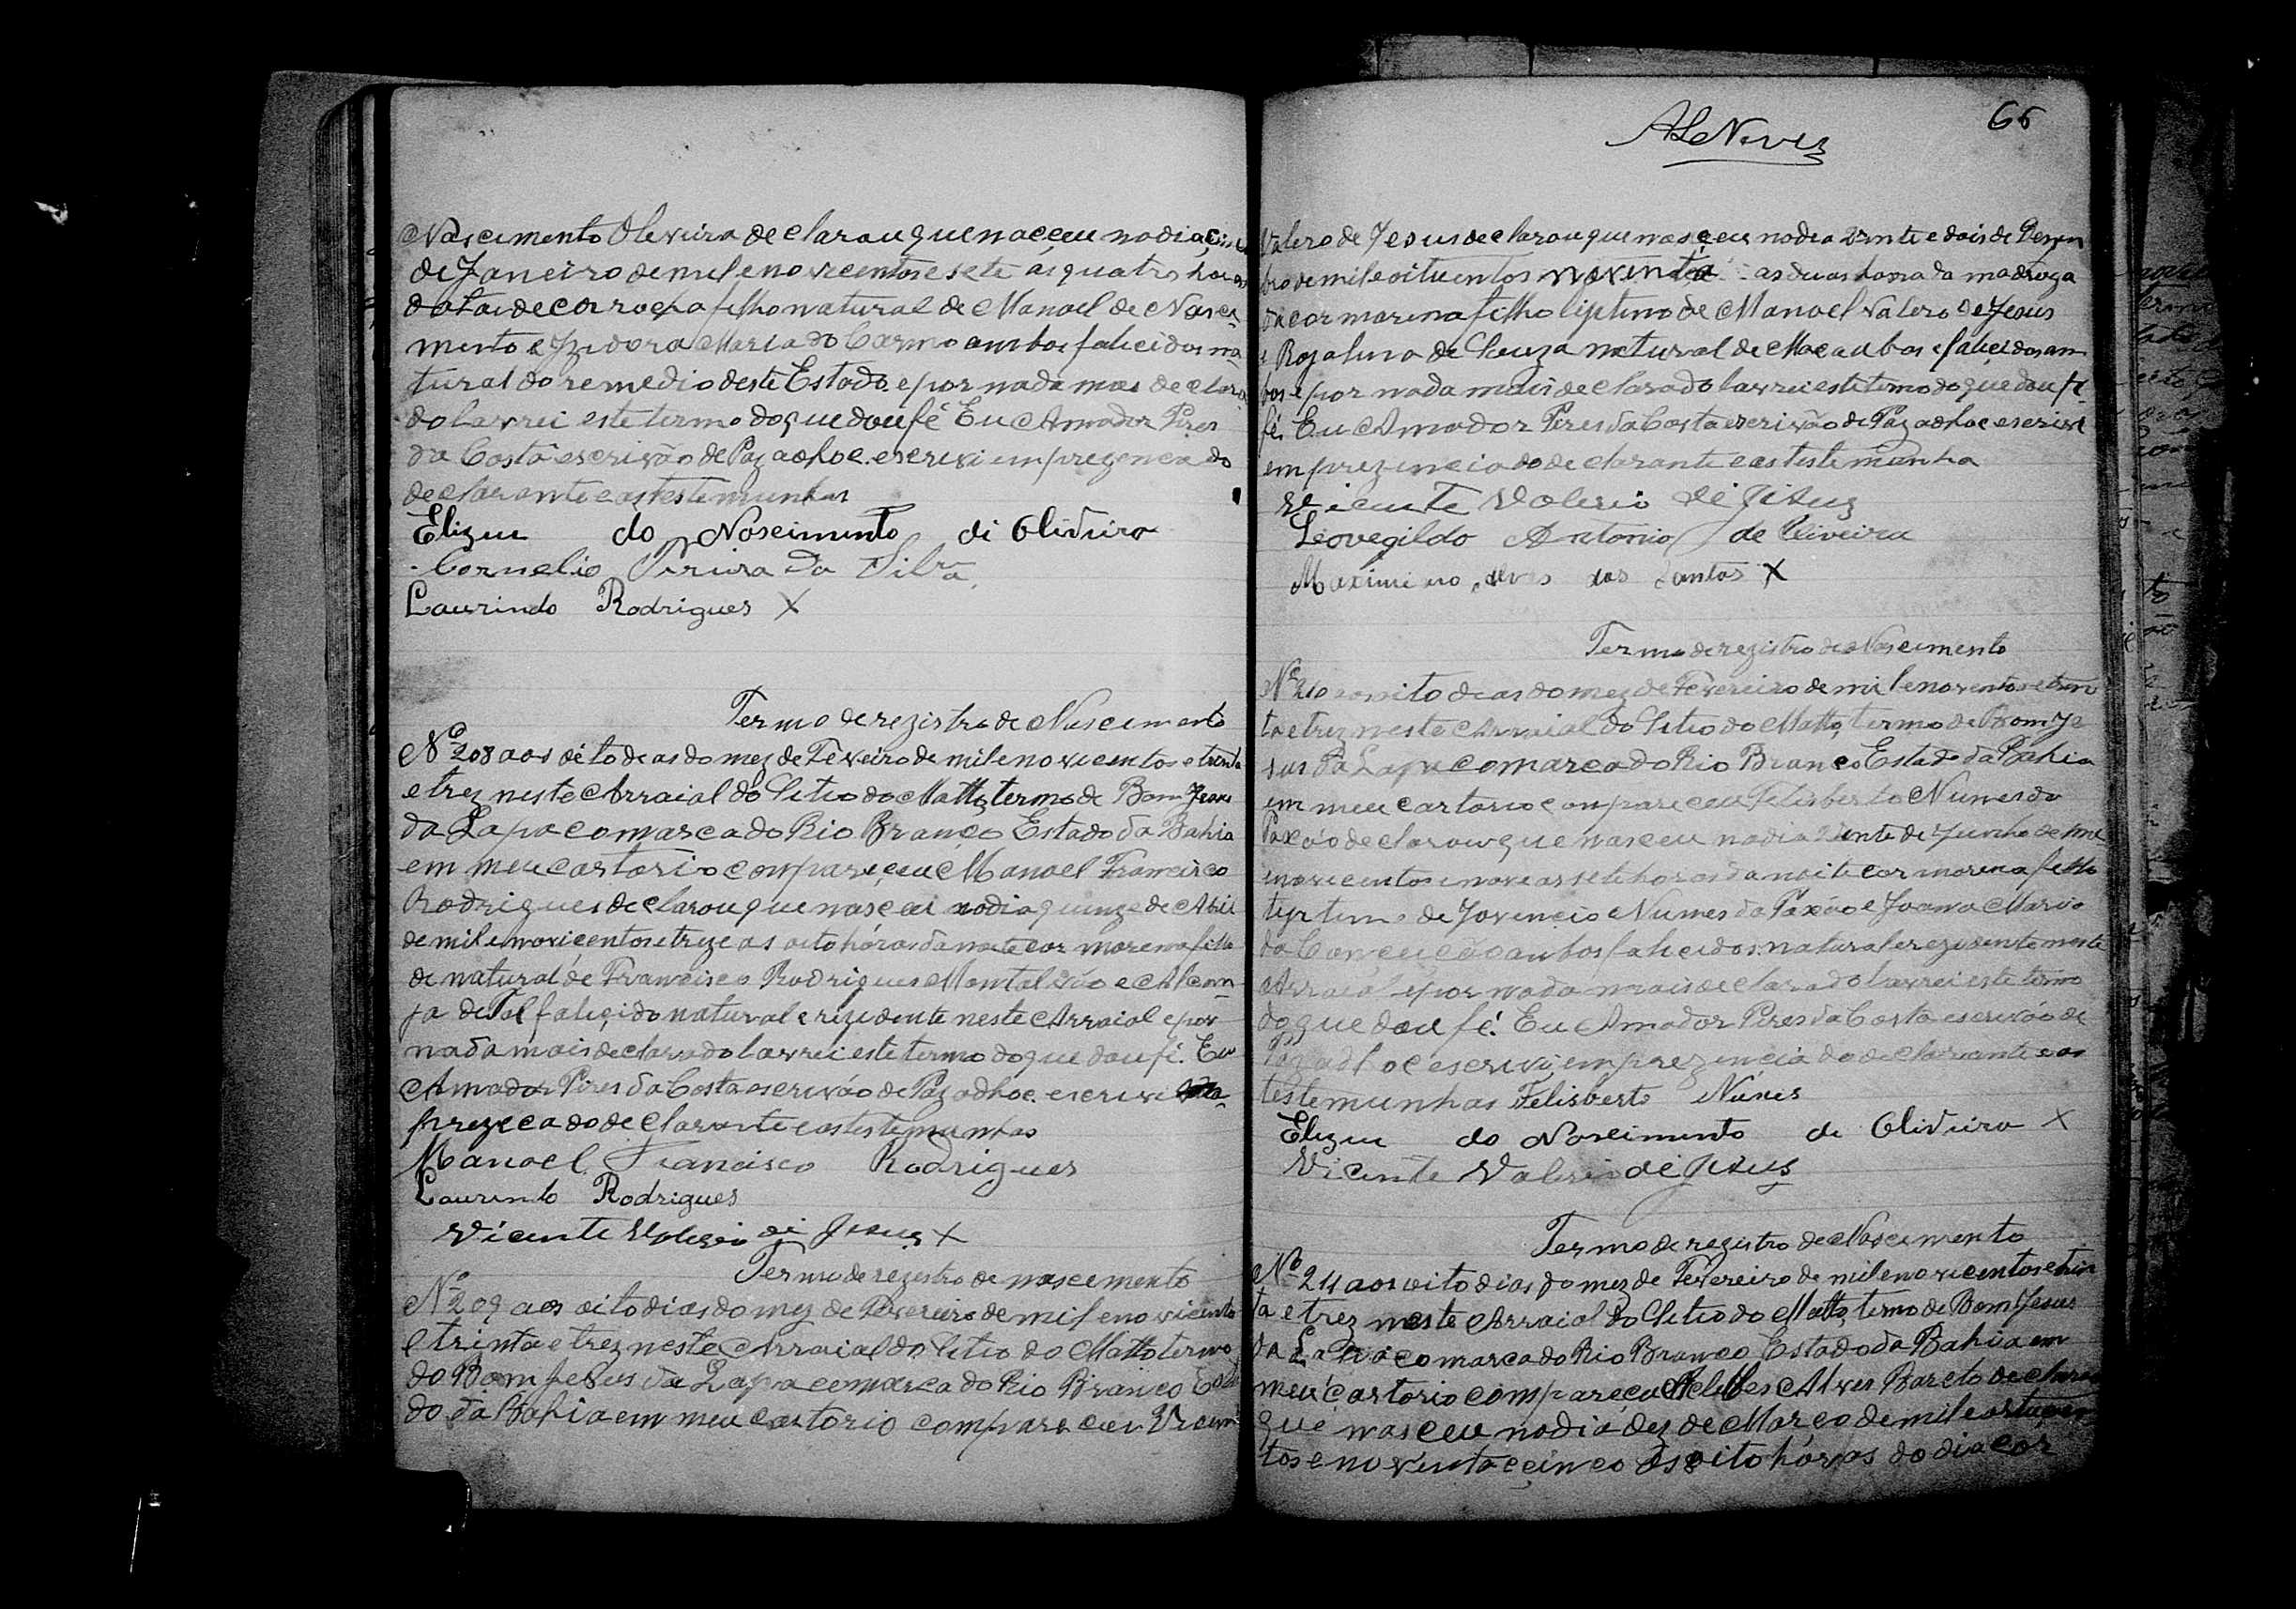 Nascimento Oliveira declarou que naceu no dia
de Janeiro de mil e novecentos e sete ás quatro horas
da tarde cor rocha filho natural de Manoel de Nasci-
mento e Izidora Maria do Carmo ambos falicidos na-
tural do remedio deste Estado e por nada mas declara
do lavrei este termo do que dou fé Eu Amador Pires
da Costa escrivão de Paz adhoc. escrevi em prezenca do
declarante e as testemunhas
Elizeu do Nascimento di Oliveira
Cornelio Pereira da Silva
Laurindo Rodrigues X
Termo de rezistro de Nascimento
Nº 208 aos oito deas do mez de Fevreiro de mil e novecentos e trinta
e trez neste Arraial do Citio do Matto, termo de Bom Jesus
da Lapa comarca do Rio Branco Estado da Bahia
em meu cartorio compareceu Manoel Francisco
Rodrigues declarou que nasceu no dia quinze de Abil
de mil e novicentos e treze as oito hóras da noite cor morena filho
de natural de Francisco Rodrigues Montalvão e
de Tal falicido natural e rezidente neste Arraial e por
nada mais declarado lavrei este termo do que dou fé. Eu
Amador Pires da Costa escrivão de Paz adhoc. escrevi
prezeca do declarante e as testemunhas
Manoel Francisco Rodrigues
Laurindo Rodrigues
Vicente Valerio di Jesus X
Termo de rezestro de nascemento
Nº 209 aos oito dias do mez de Fevereiro de mil e novicento
e trinta e trez neste Arraial do Citio do Matto termo
do Bom Jesus da Lapa comarca do Rio Branco Esta
do da Bahia em meu cartorio compareceu Vicen
ALNeves
66
Valero de Jesus declarou que nasceu no dia vinte e dois de Dezem
bro de mil e oitucentos noventa as duas horas da madruga
da cor morena filho ligitimo de Manoel Valero de Jesus
e Rozalina de Souza natural de Macaubas e falicidos am
bos e por nada mais declarado lavrei este termo do que dou fé
fé. Eu Amador Pires da Costa escrivão de Paz adhoc escrivi
em prezencia do declarante e as testemunha
Vicente Valerio di Jisus
Leovegildo Antonio de Oliveira
Maximino Alves dos Santos X
Termo de rezistro de Nascemento
Nº 210 aos oito deas do mez de Fevereiro de mil e novecentos e trin
ta e trez neste Arraial do Citio do Matto, termo de Bom Je
sus da Lapa comarca do Rio Branco Estado da Bahia
em meu cartorio compareceu Felisberto Nunes da
Paxão declarou que nasceu no dia vinte de Junho de mil
e novecentos e nove as sete horas da noite cor morena filho
de Jovencio Nunes da Paxão e Joana Maria
da Conceicão ambos falicidos natural e rezidente neste
Arraial e por nada mais declarado lavrei este termo
do que dou fé. Eu Amador Pires da Costa escrivão de
Paz adhoc escrivi em prezencia do declarante e as
testemunhas Felisberto Nunes
Elizeu do Nascimento de Oliveira X
Vicente Valerio di Jesus
Termo de rezistro de Nascemento
Nº 211 aos oito dias do mez de Fevereiro de mil e novecentos e trin
ta e trez neste Arraial do Citio do Matto, termo de Bom Jesus
da Lapa comarca do Rio Branco Estado da Bahia em
meu cartorio compareceu Alves Bareto declarou
que nasceu no dia dez de Março de mil e oitucen
tos e noventa e cinco as oito hóras do dia cor